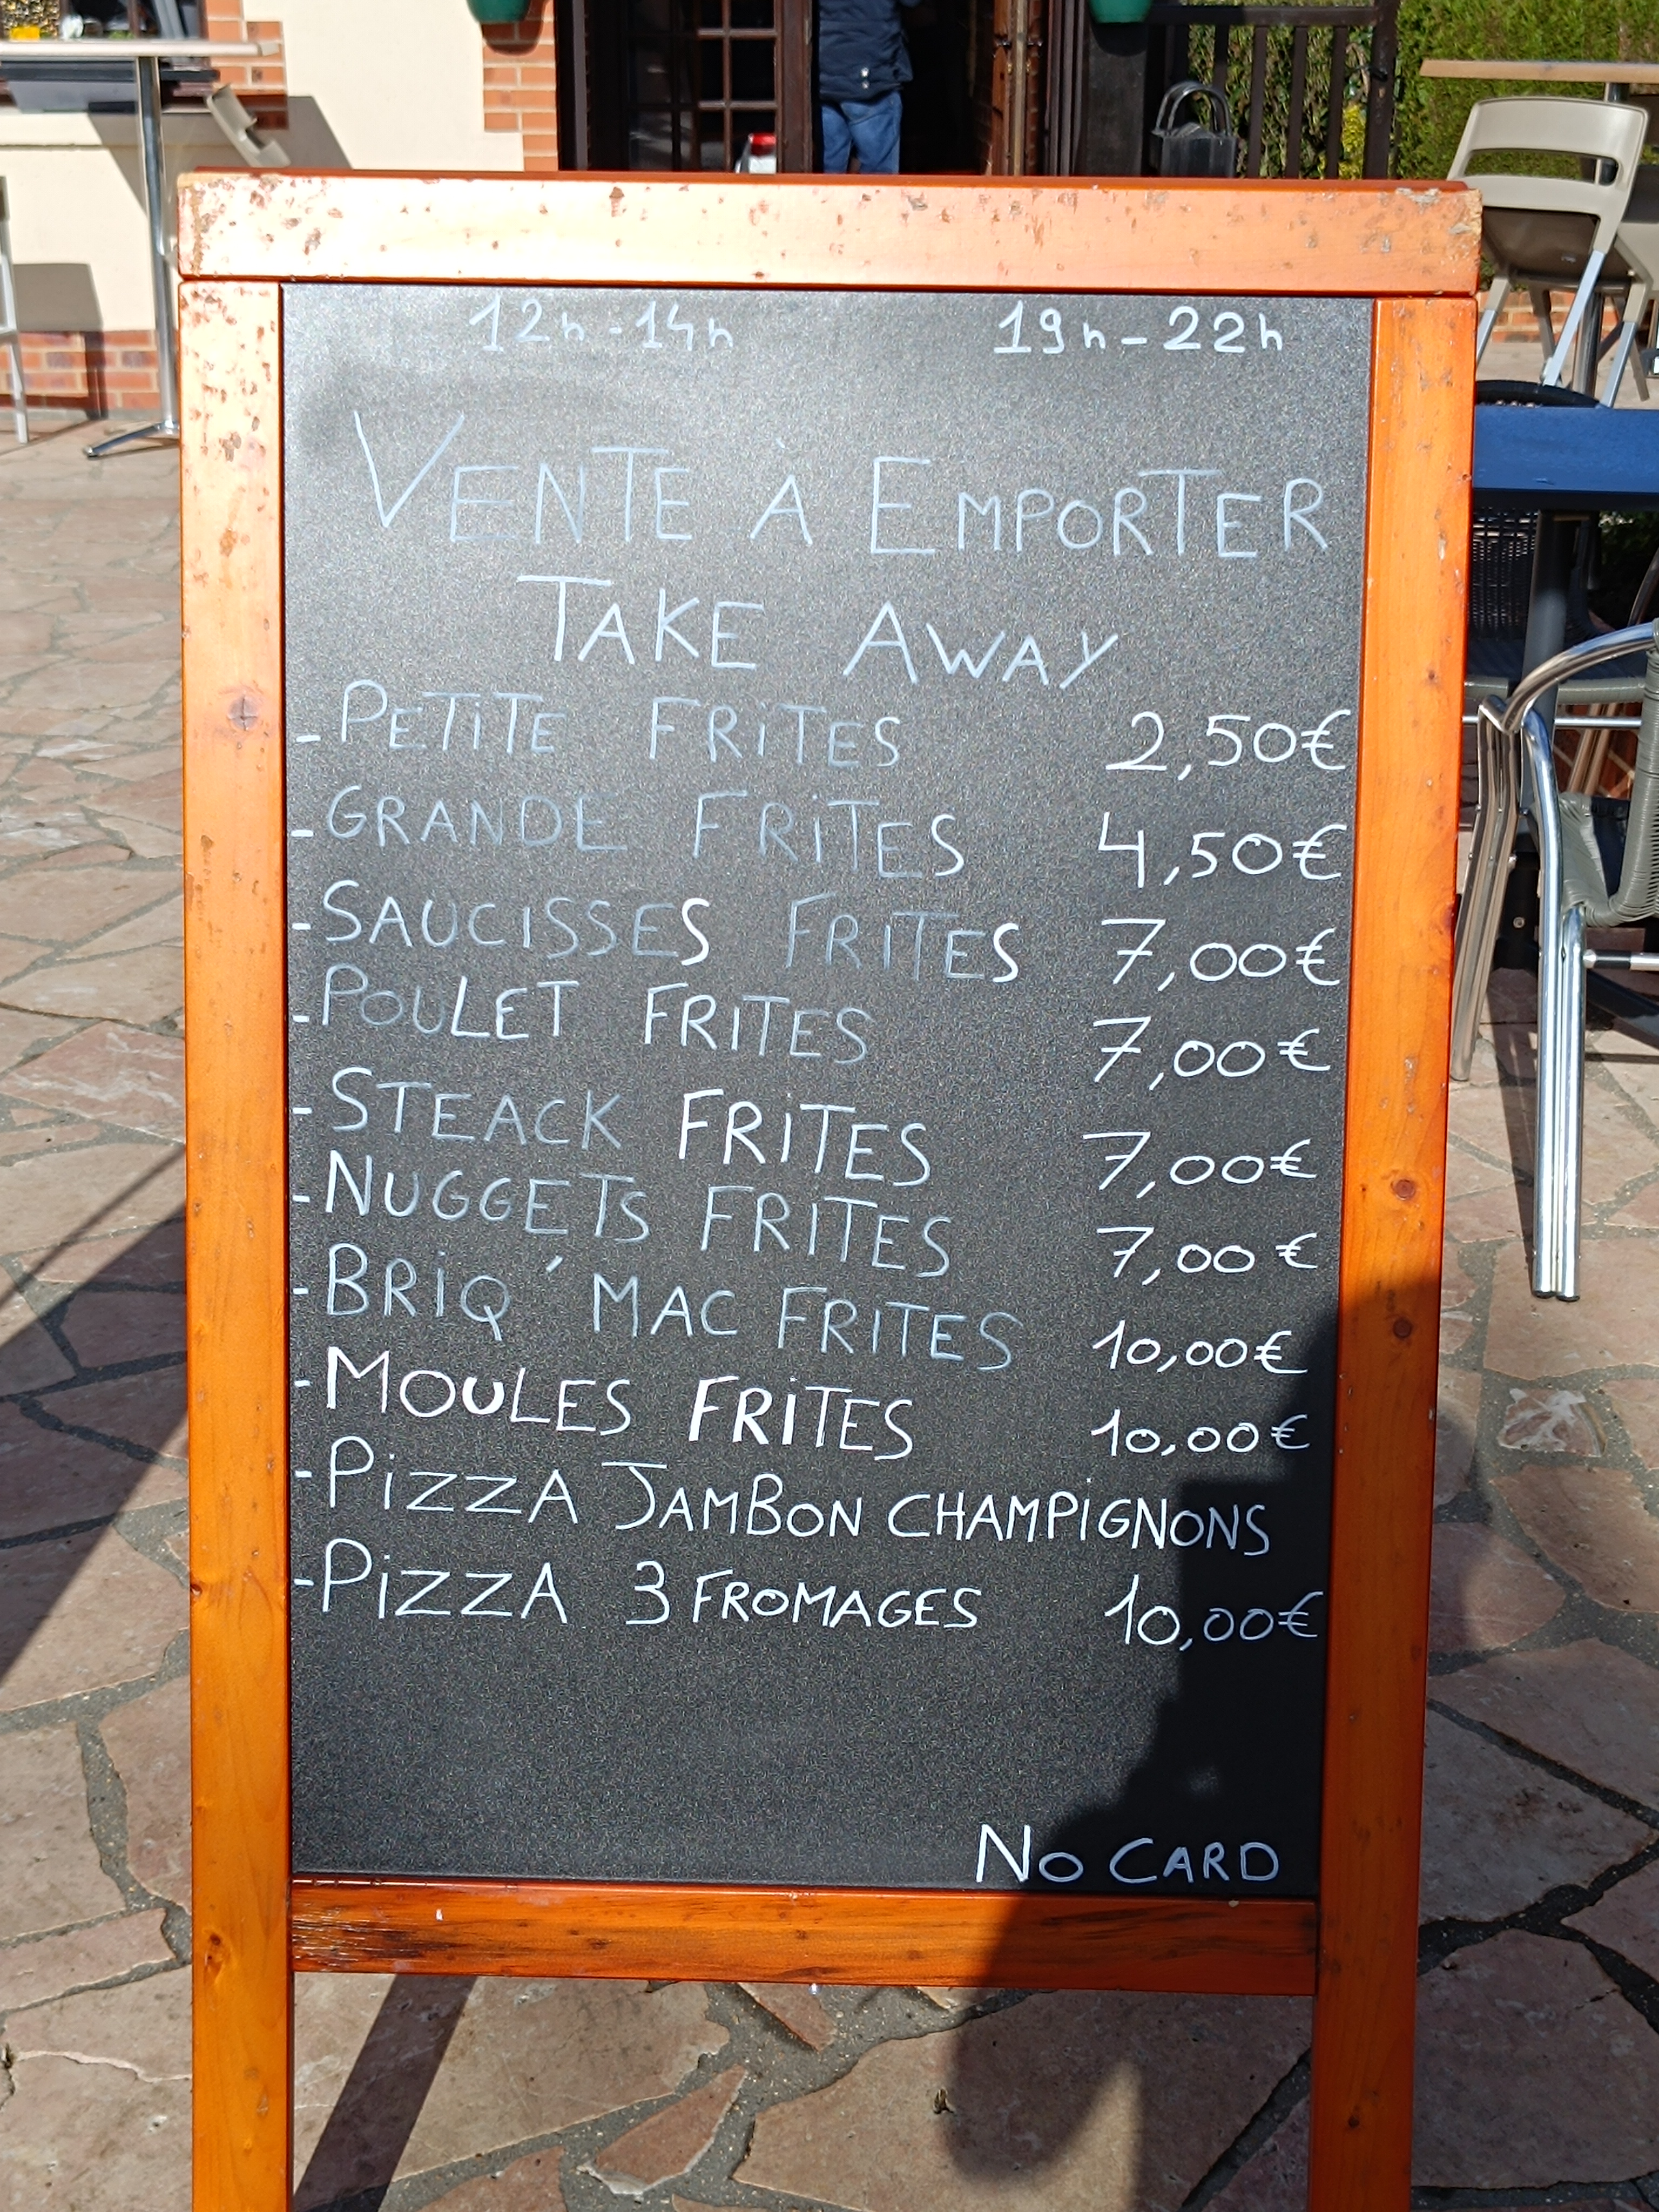 12h-14h 19h-22h
VENTE À EMPORTER
TAKE AWAY
-PETITE FRITES 2,50€
-GRANDE FRITES 4,50€
-SAUCISSES FRITES 7,00€
-POULET FRITES 7,00€
-STEACK FRITES 7,00€
-NUGGETS FRITES 7,00€
-BRIQ'MAC FRITES 10,00€
-MOULES FRITES 10,00€
-PIZZA JAMBON CHAMPIGNONS
-PIZZA 3 FROMAGES 10,00€
NO CARD